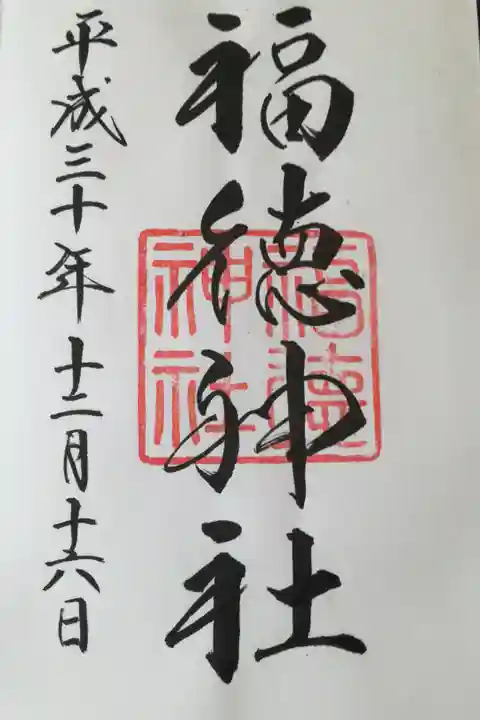 福徳神社
福徳
神社
平成三十年十二月十六日